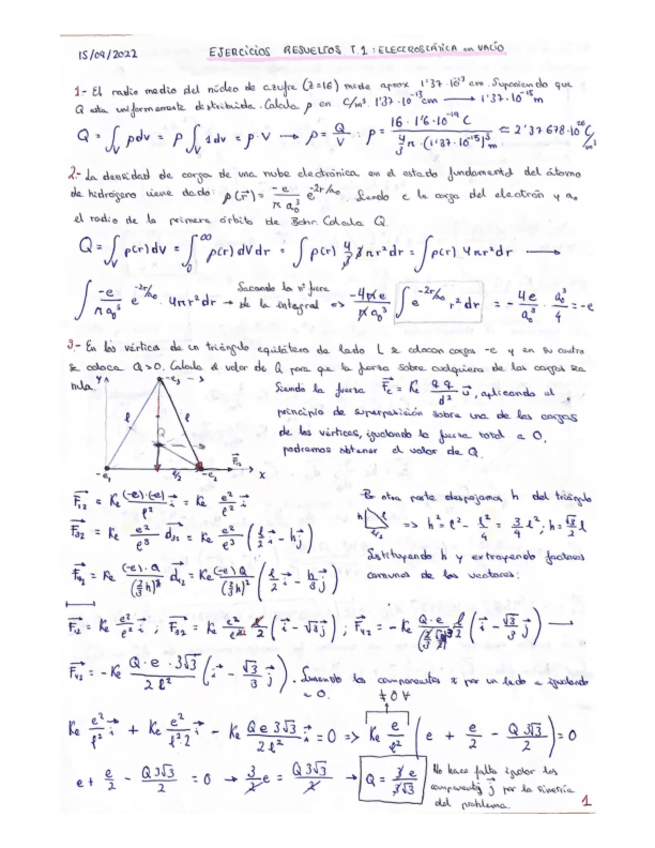 15/09/2022 EJERCICIOS RESUELTOS T.1: ELECTROSTÁTICA en VACÍO
1- El radio medio del núcleo de azufre (z=16) mide aprox 1'37·10⁻¹³ cm. Suponiendo que
Q esta uniformemente distribuida. Calcula ρ en C/m³. 1'37·10⁻¹³cm → 1'37·10⁻¹⁵m
Q = ∫ᵥ ρdv = ρ ∫ᵥ 1dv = ρ·V → ρ = Q/V ; ρ =
2- La densidad de carga de una nube electrónica en el estado fundamental del átomo
de hidrógeno viene dado: ρ(r⃗) = -e/(π a₀³) e^(-2r/a₀). Siendo e la carga del electrón y a₀
el radio de la primera órbita de Bohr. Calcula Q.
Q = ∫ᵥ ρ(r)dV = ∫₀^∞ ρ(r) dV dr = ∫ρ(r) 4/3 3πr²dr = ∫ρ(r) 4πr²dr →
∫ -e/(πa₀³) e^(-2r/a₀) · 4πr²dr → Sacando lo n° fuera de la integral => -4πe/(πa₀³) ∫ e^(-2r/a₀) r²dr = - 4e/a₀³ · a₀³/4 = -e
3- En los vértices de un triángulo equilátero de lado L se colocan cargas -e y en su centro
se coloca Q>0. Calcula el valor de Q para que la fuerza sobre cualquiera de las cargas sea
nula.
Siendo la fuerza F⃗e = Ke q q/d² u⃗, aplicando el
principio de superposición sobre una de las cargas
de los vértices, igualando la fuerza total a 0,
podremos obtener el valor de Q.
y
-e₃
l
l
Q
-e₁
l/2
-e₂
F⃗₁₂
x
F⃗₁₂ = Ke (-e)·(-e)/l² i⃗ = Ke e²/l² i⃗
Por otra parte despejamos h del triángulo
F⃗₃₂ = Ke e²/l³ d⃗₃₂ = Ke e²/l³ (l/2 i⃗ - h j⃗)
=> h² = l² - l²/4 = 3/4 l²; h = √3/2 l
Sustituyendo h y extrayendo factores
comunes de los vectores:
F⃗₁₂ = Ke e²/l² i⃗ ;
F⃗₄₂ = -Ke Q·e·3√3/(2l²) (i⃗ - √3/3 j⃗). Sumando las componentes x por un lado e igualando
a 0.
≠0 ∀
Ke e²/l² i⃗ + Ke e²/(l²·2) i⃗ - Ke Q e 3√3/(2l²) i⃗ = 0 => Ke e/l² (e + e/2 - Q3√3/2) = 0
e + e/2 - Q3√3/2 = 0 → 3/2 e = Q3√3/2 → Q = 3e/(3√3)
No hace falta igualar los
componentes j⃗ por la simetría
del problema.
1